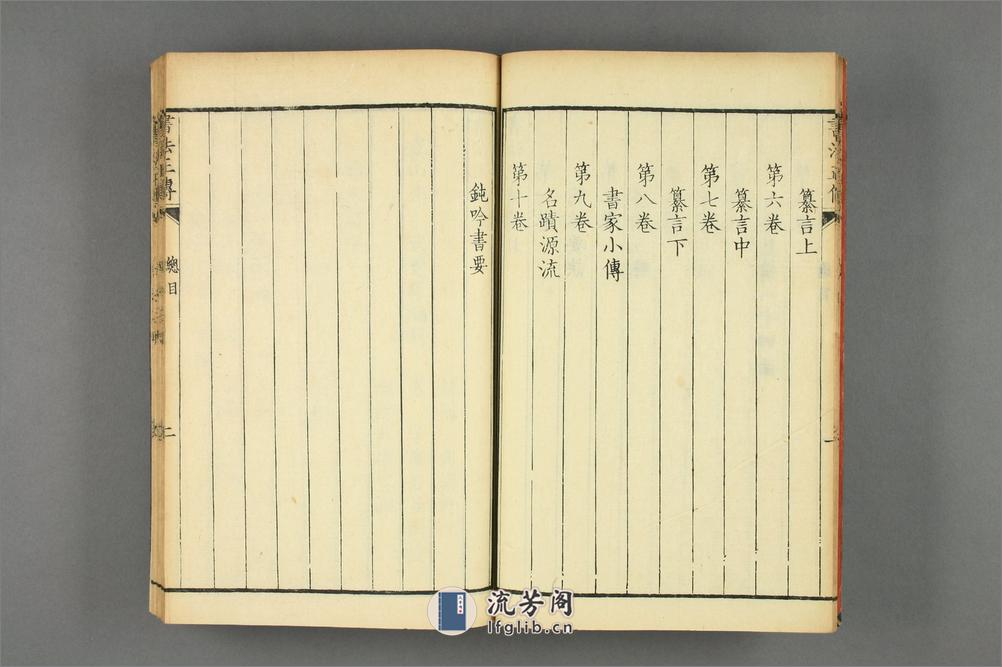 纂言上
第六卷
纂言中
第七卷
纂言下
第八卷
書家小傳
第九卷
名蹟源流
第十卷
鈍吟書要
書法正傳
總目
二
流芳阁
lfglib.cn